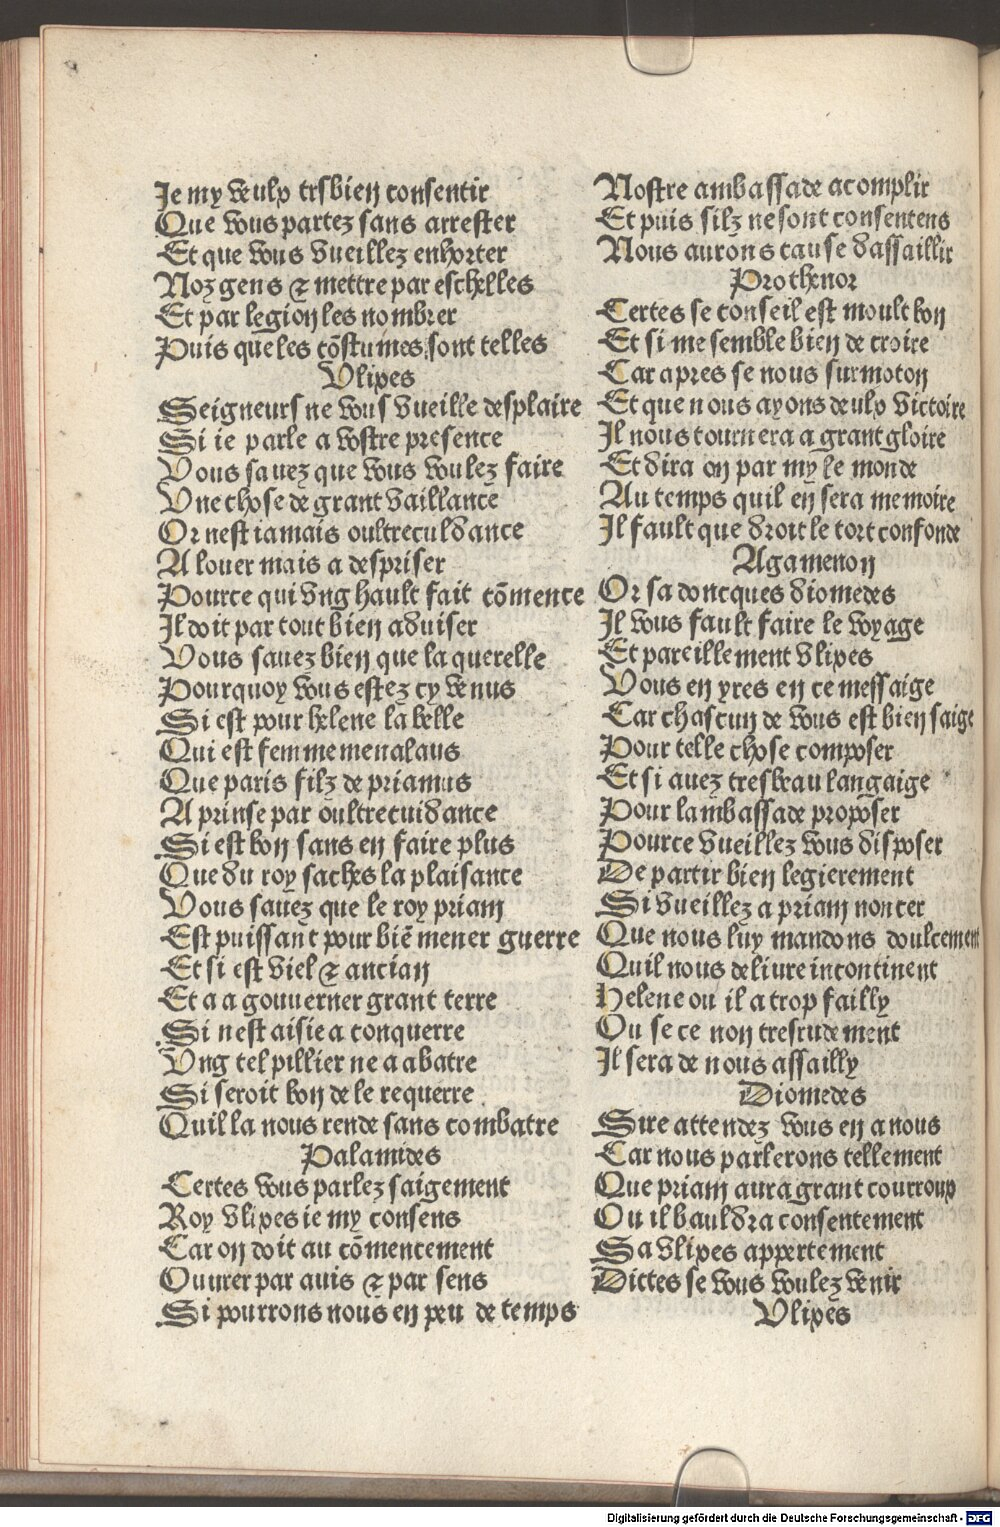 Je my veulx trsbien consentir
Que vous partez sans arrester
Et que vous vueillez enhorter
Noz gens & mettre par eschelles
Et par legion les nombrer
Puis que les cõstumes sont telles
Vlixes
Seigneurs ne vous vueille desplaire
Si ie parle a vostre presence
Vous sauez que vous voulez faire
Vne chose de grant vaillance
Or nest iamais oultreculdance
A louer mais a despriser
Pource qui vng hault fait cõmence
Il doit par tout bien aduiser
Vous sauez bien que la querelle
Pourquoy vous estez cy venus
Si est pour helene la belle
Qui est femme menalaus
Que paris filz de priamus
A prinse par oultrecuidance
Si est bon sans en faire plus
Que du roy saches la plaisance
Vous sauez que le roy priam
Est puissant pour biẽ mener guerre
Et si est viel & ancian
Et a a gouuerner grant terre
Si nest aisie a conquerre
Vng tel pillier ne a abatre
Si seroit bon de le requerre
Quil la nous rende sans combatre
Palamides
Certes vous parlez saigement
Roy vlixes ie my consens
Car on doit au cõmencement
Ouurer par auis & par sens
Si pourrons nous en peu de temps
Nostre ambassade acomplir
Et puis silz ne sont consentens
Nous aurons cause dassaillir
Prothenor
Certes se conseil est moult bon
Et si me semble bien de croire
Car apres se nous surmoton
Et que nous ayons deulx victoire
Il nous tournera a grant gloire
Et dira on par my le monde
Au temps quil en sera memoire
Il fault que droit le tort confonde
Agamenon
Or sa doncques diomedes
Il vous fault faire le voyage
Et pareillement vlixes
Vous en yres en ce messaige
Car chascun de vous est bien saige
Pour telle chose composer
Et si auez tresbeau langaige
Pour lambassade proposer
Pource vueillez vous disposer
De partir bien legierement
Si vueillez a priam noncer
Que nous luy mandons doulcement
Quil nous deliure incontinent
Helene ou il a trop failly
Ou se ce non tresrudement
Il sera de nous assailly
Diomedes
Sire attendez vous en a nous
Car nous parlerons tellement
Que priam aura grant courroux
Ou il bauldra consentement
Sa vlixes appertement
Dictes se vous voulez venir
Vlixes
Digitalisierung gefördert durch die Deutsche Forschungsgemeinschaft - DFG